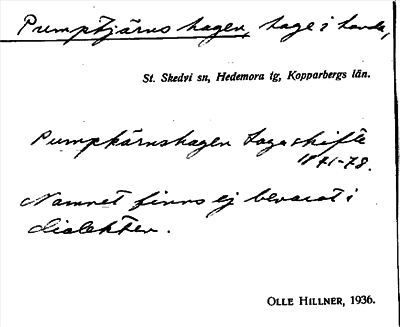 Pumptjärns hagen, hage i
St. Skedvi sn, Hedemora tg, Kopparbergs län.
Pumpkärnshagen Laga skifte
1871-78.
Namnet finns ej bevarat i
dialekten.
OLLE HILLNER, 1936.